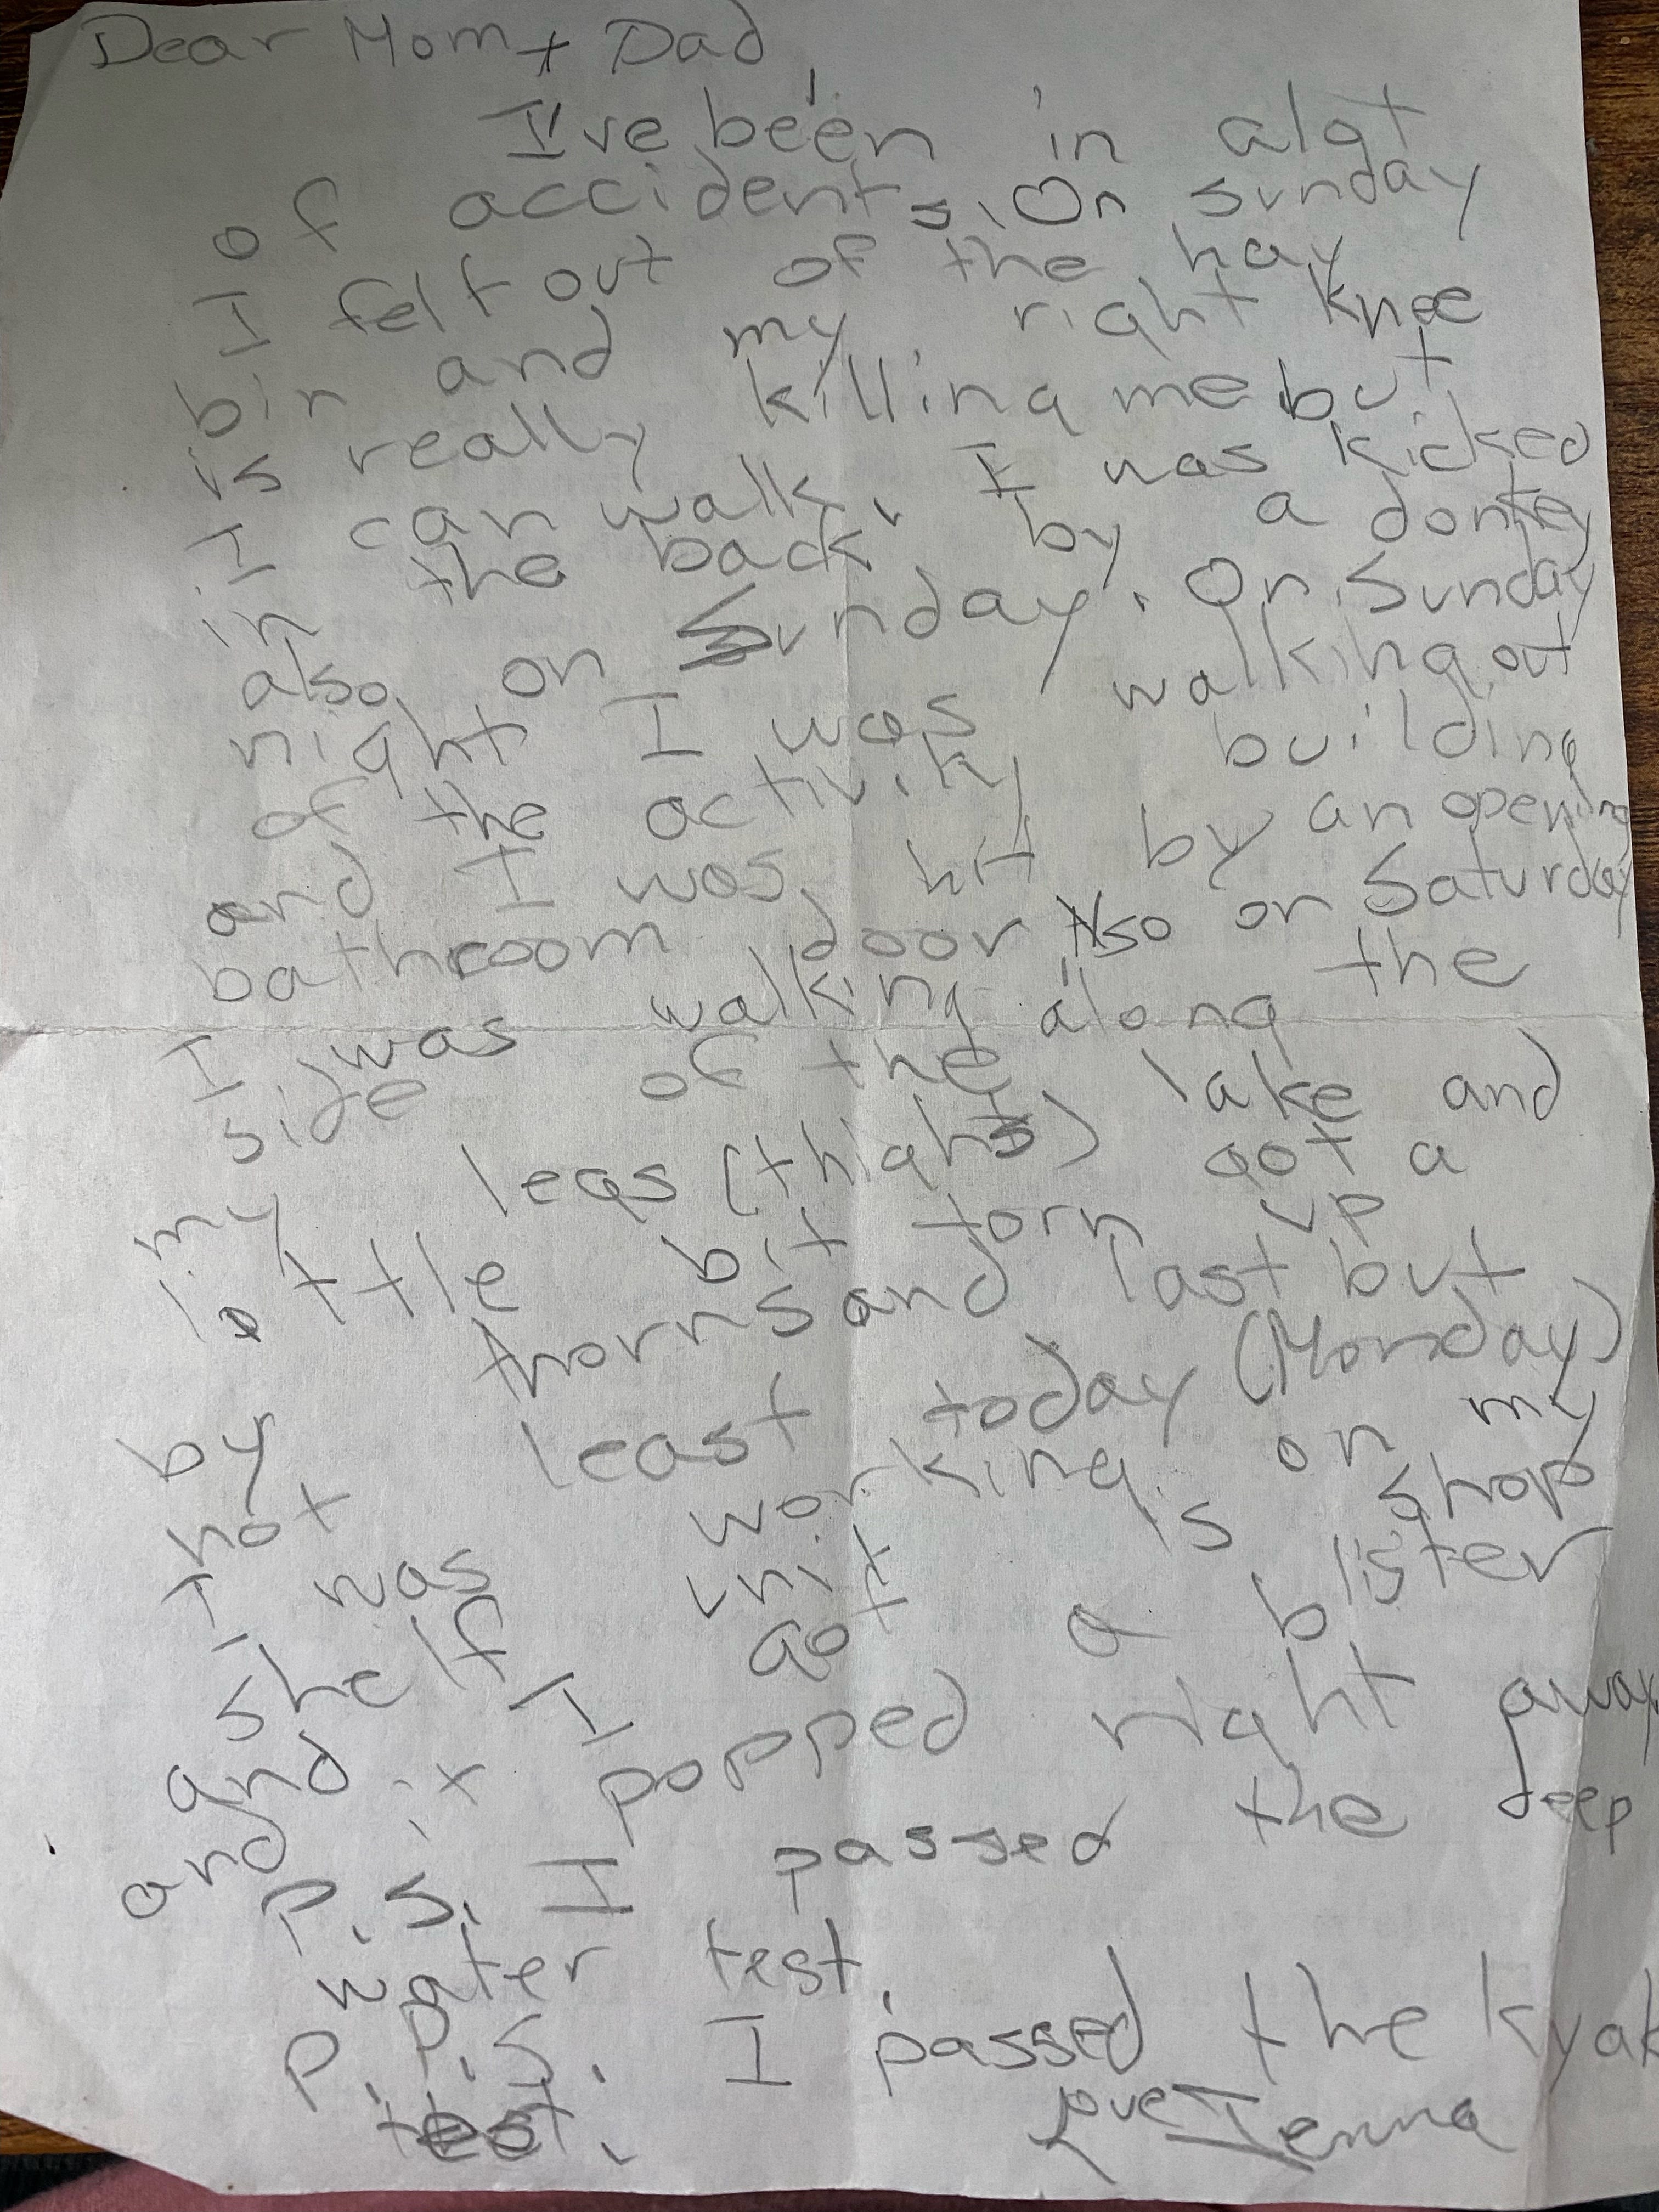 Dear Mom + Dad,
I've been in alot
of accidents. On sunday
I felt out of the hay
bin and my right knee
is really killing me but
I can walk. I was kicked
in the back by a donkey
also on Sunday. On Sunday
night I was walking out
of the activity building
and I was hit by an opening
bathroom door Also on Saturday
I was walking along the
side of the lake and
my legs (thighs) got a
little bit torn up
by thorns and last but
not least today (Monday)
I was working on my
shelf unit is shop
and I got a blister
and it popped right away
P.S. I passed the deep
water test.
P.P.S. I passed the kyak
test.
Love Jenna